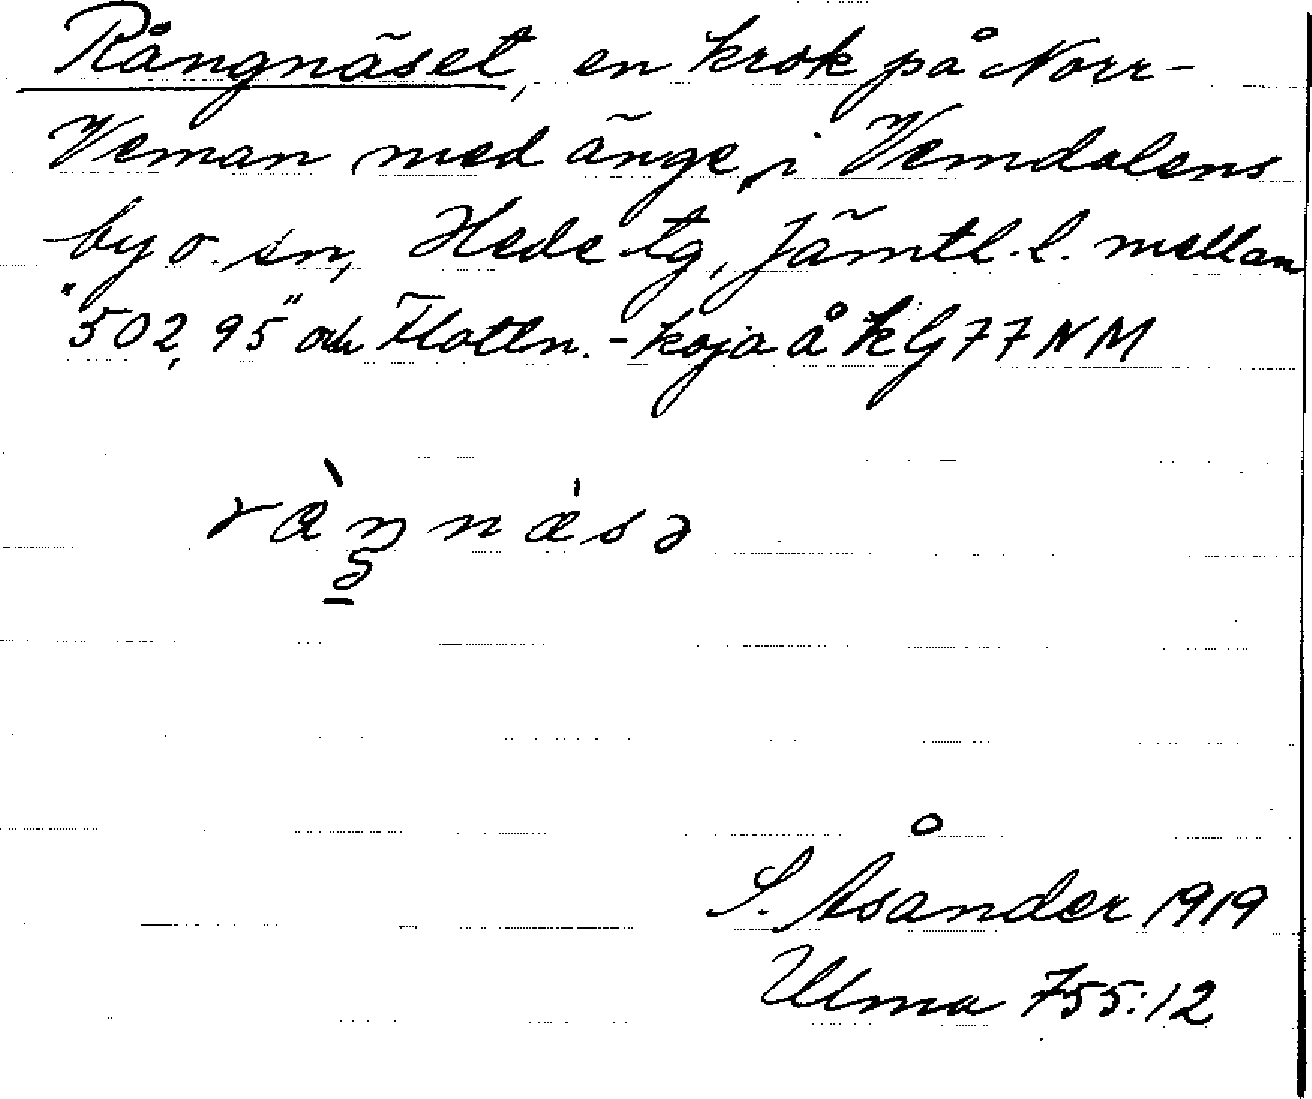 Rångnäset, en krok på Norr-
Veman med änge, i Vemdalens
by o. sn, Hede tg, Jämtl. l. mellan
"502,95" och Flottn.-koja å KG 77 NM
S. Åsander 1919
Ulma 755:12